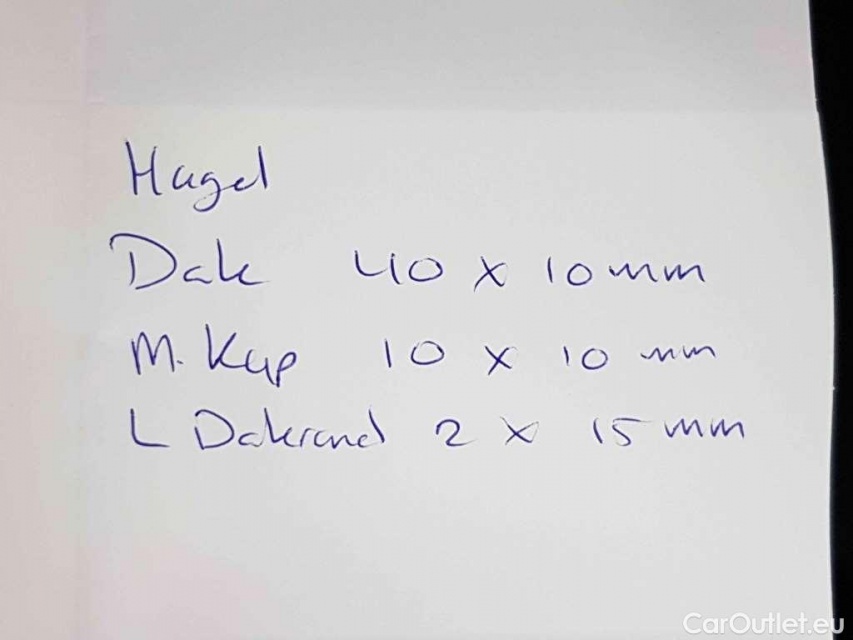 Hagel
Dak 40 x 10 mm
M. Kap 10 x 10 mm
L Dakrand 2 x 15 mm
CarOutlet.eu